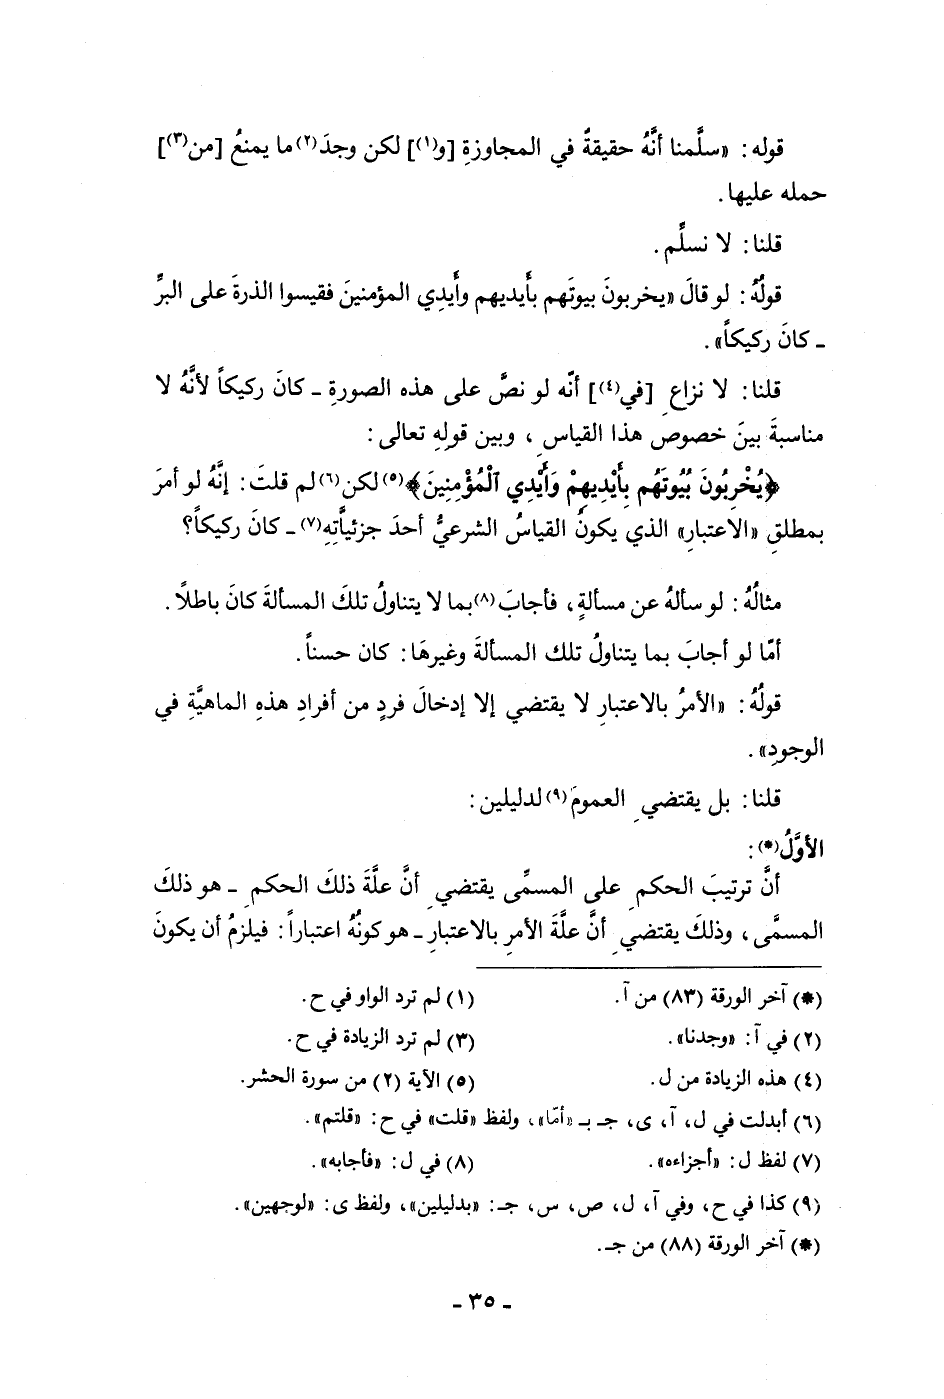 قوله: «سلَّمنا أنَّهُ حقيقةٌ في المجاوزةِ [و(١)] لكن وجدَ(٢) ما يمنعُ [من(٣)]
حمله عليها.
قلنا: لا نسلِّم.
قولُهُ: لو قالَ «يخربونَ بيوتَهم بأيديهم وأيدِي المؤمنينَ فقيسوا الذرةَ على البرِّ
ـ كانَ ركيكاً».
قلنا: لا نزاعِ [في(٤)] أنّه لو نصَّ على هذه الصورةِ ـ كانَ ركيكاً لأنَّهُ لا
مناسبةَ بينَ خصوصِ هذا القياسِ، وبين قولِهِ تعالى:
﴿يُخْرِبُونَ بُيُوتَهُم بِأَيْدِيهِمْ وَأَيْدِي ٱلْمُؤْمِنِينَ﴾(٥) لكن(٦) لم قلتَ: إنَّهُ لو أمرَ
بمطلقِ «الاعتبارِ» الذي يكونُ القياسُ الشرعيُّ أحدَ جزئيَّاتِهِ(٧) ـ كانَ ركيكاً؟
مثالُهُ: لو سألهُ عن مسألةٍ، فأجابَ(٨) بما لا يتناولُ تلكَ المسألةَ كانَ باطلاً.
أمّا لو أجابَ بما يتناولُ تلك المسألةَ وغيرهَا: كان حسناً.
قولُهُ: «الأمرُ بالاعتبارِ لا يقتضي إلا إدخالَ فردٍ من أفرادِ هذهِ الماهيَّةِ في
الوجودِ».
قلنا: بل يقتضي العمومَ(٩) لدليلين:
الأوَّلُ(*):
أنَّ ترتيبَ الحكمِ على المسمَّى يقتضي أنَّ علَّةَ ذلكَ الحكمِ ـ هو ذلكَ
المسمَّى، وذلكَ يقتضي أنَّ علَّةَ الأمرِ بالاعتبارِ ـ هو كونُهُ اعتباراً: فيلزمُ أن يكونَ
(*) آخر الورقة (٨٣) من آ.
(١) لم ترد الواو في ح.
(٢) في آ: «وجدنا».
(٣) لم ترد الزيادة في ح.
(٤) هذه الزيادة من ل.
(٥) الآية (٢) من سورة الحشر.
(٦) أبدلت في ل، آ، ى، جـ بـ «أمّا»، ولفظ «قلت» في ح: «قلتم».
(٧) لفظ ل: «أجزاءه».
(٨) في ل: «فأجابه».
(٩) كذا في ح، وفي آ، ل، ص، س، جـ: «بدليلين»، ولفظ ى: «لوجهين».
(*) آخر الورقة (٨٨) من جـ.
ـ ٣٥ ـ